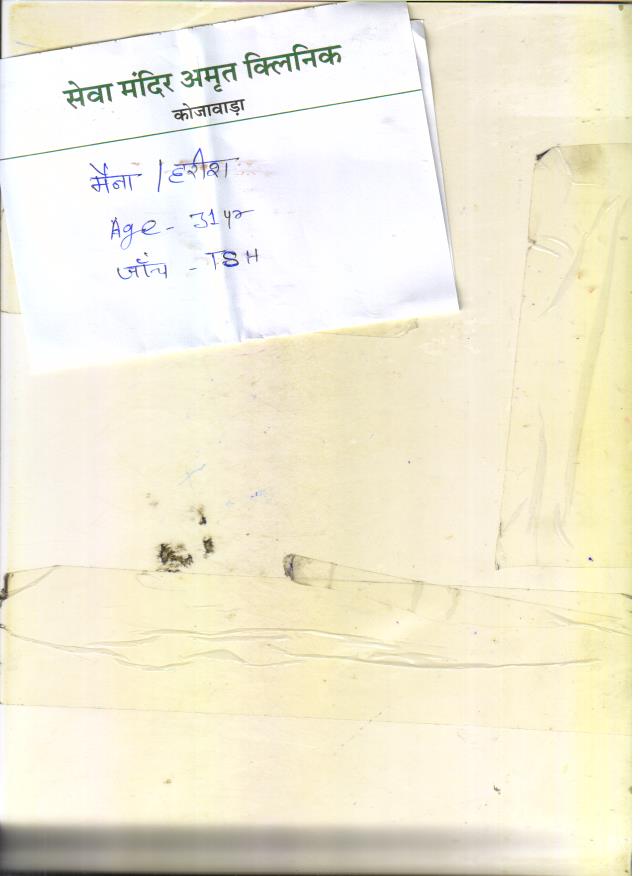 सेवा मंदिर अमृत क्लिनिक
कोजावाड़ा
मैना / हरीश
Age - 31 yr
जाँच - TSH